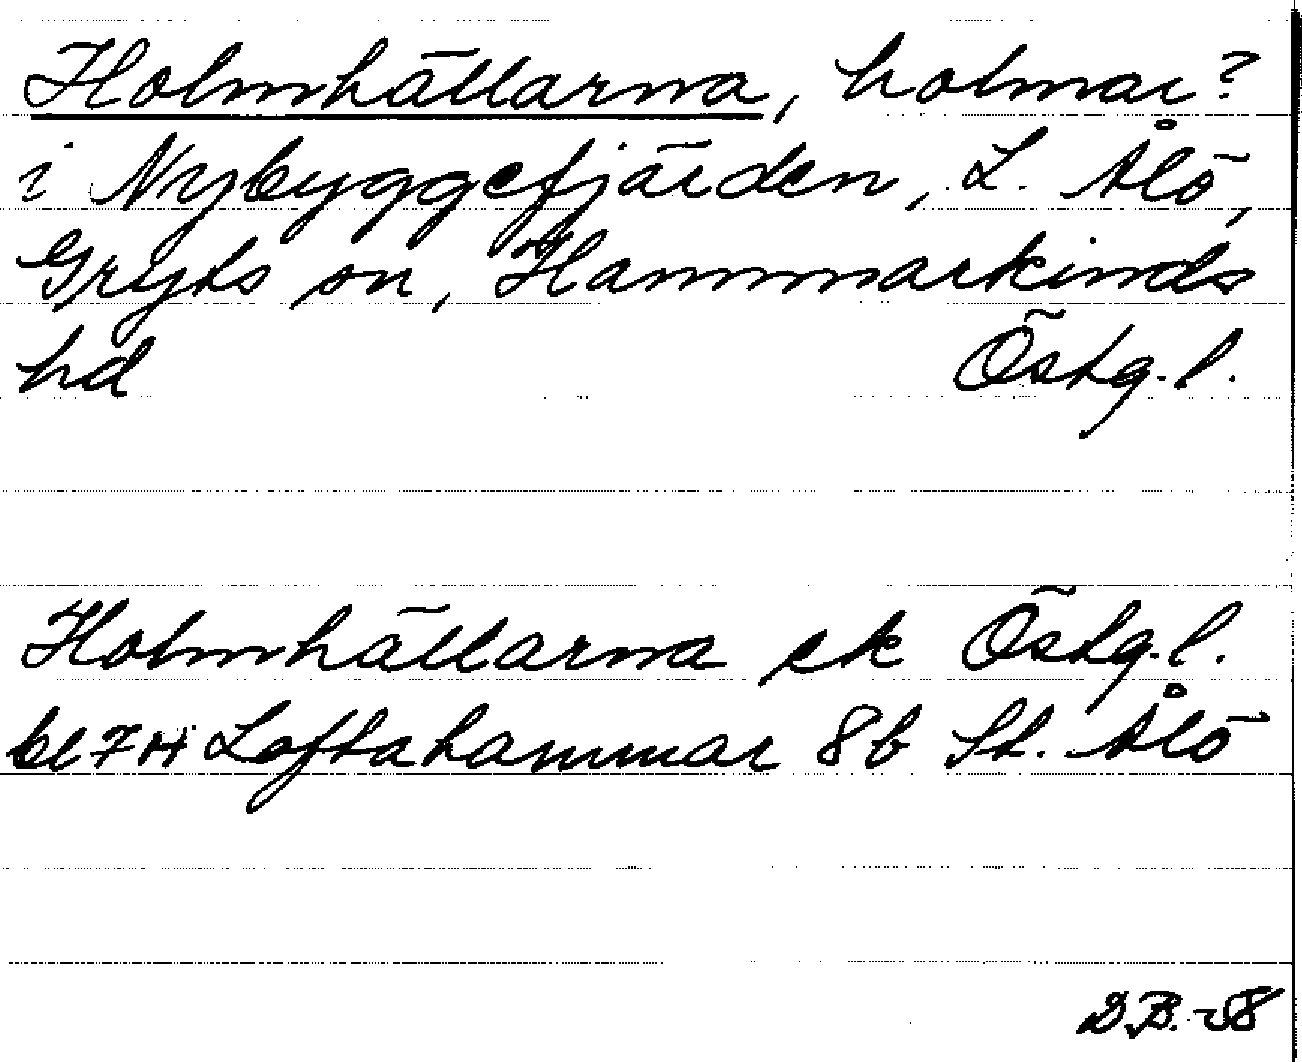 Holmhällarna, holmar?
i Nybyggefjärden, L. Ålö,
Gryts sn, Hammarkinds
hd Östg. l.
Holmhällarna ek Östg. l.
bl 7H Loftahammar 8b St. Ålö
D.B. -58